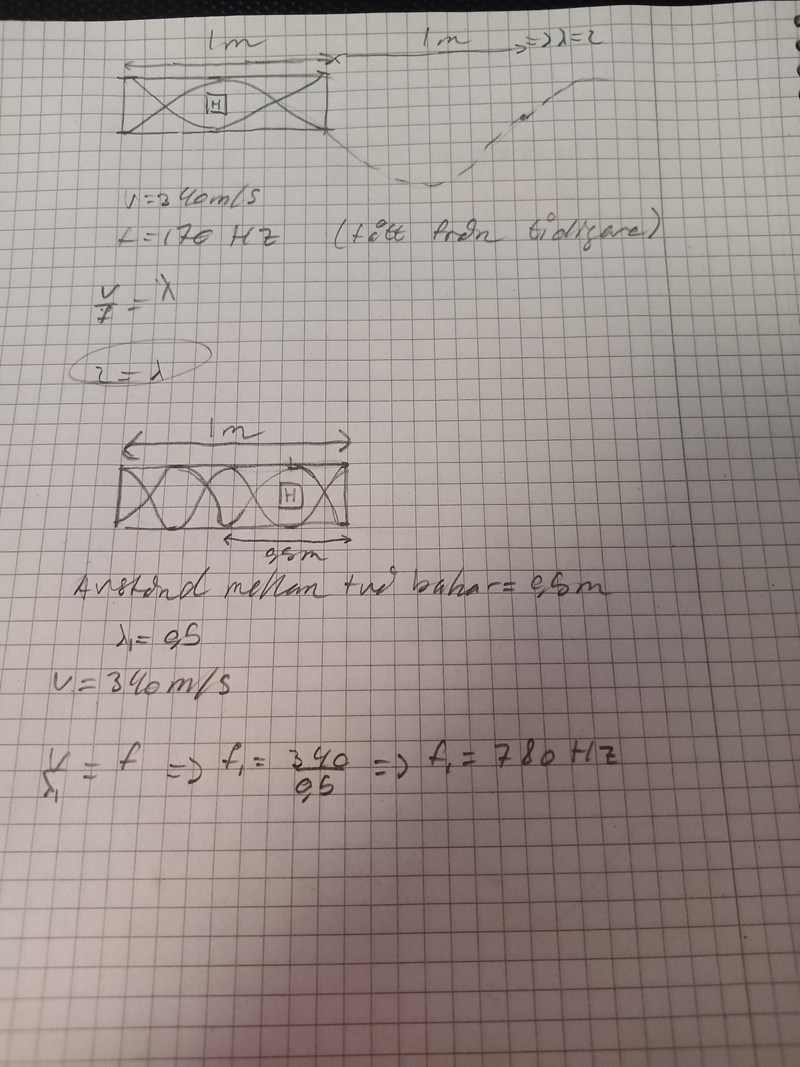 1m 1m => λ=2
H
v=340m/s
f=170 HZ (fått från tidigare)
v/f = λ
2=λ
1m
H
0,5m
Avstånd mellan två bukar= 0,5m
λ₁= 0,5
v=340m/s
v/λ₁ = f => f₁= 340/0,5 => f₁= 780 HZ